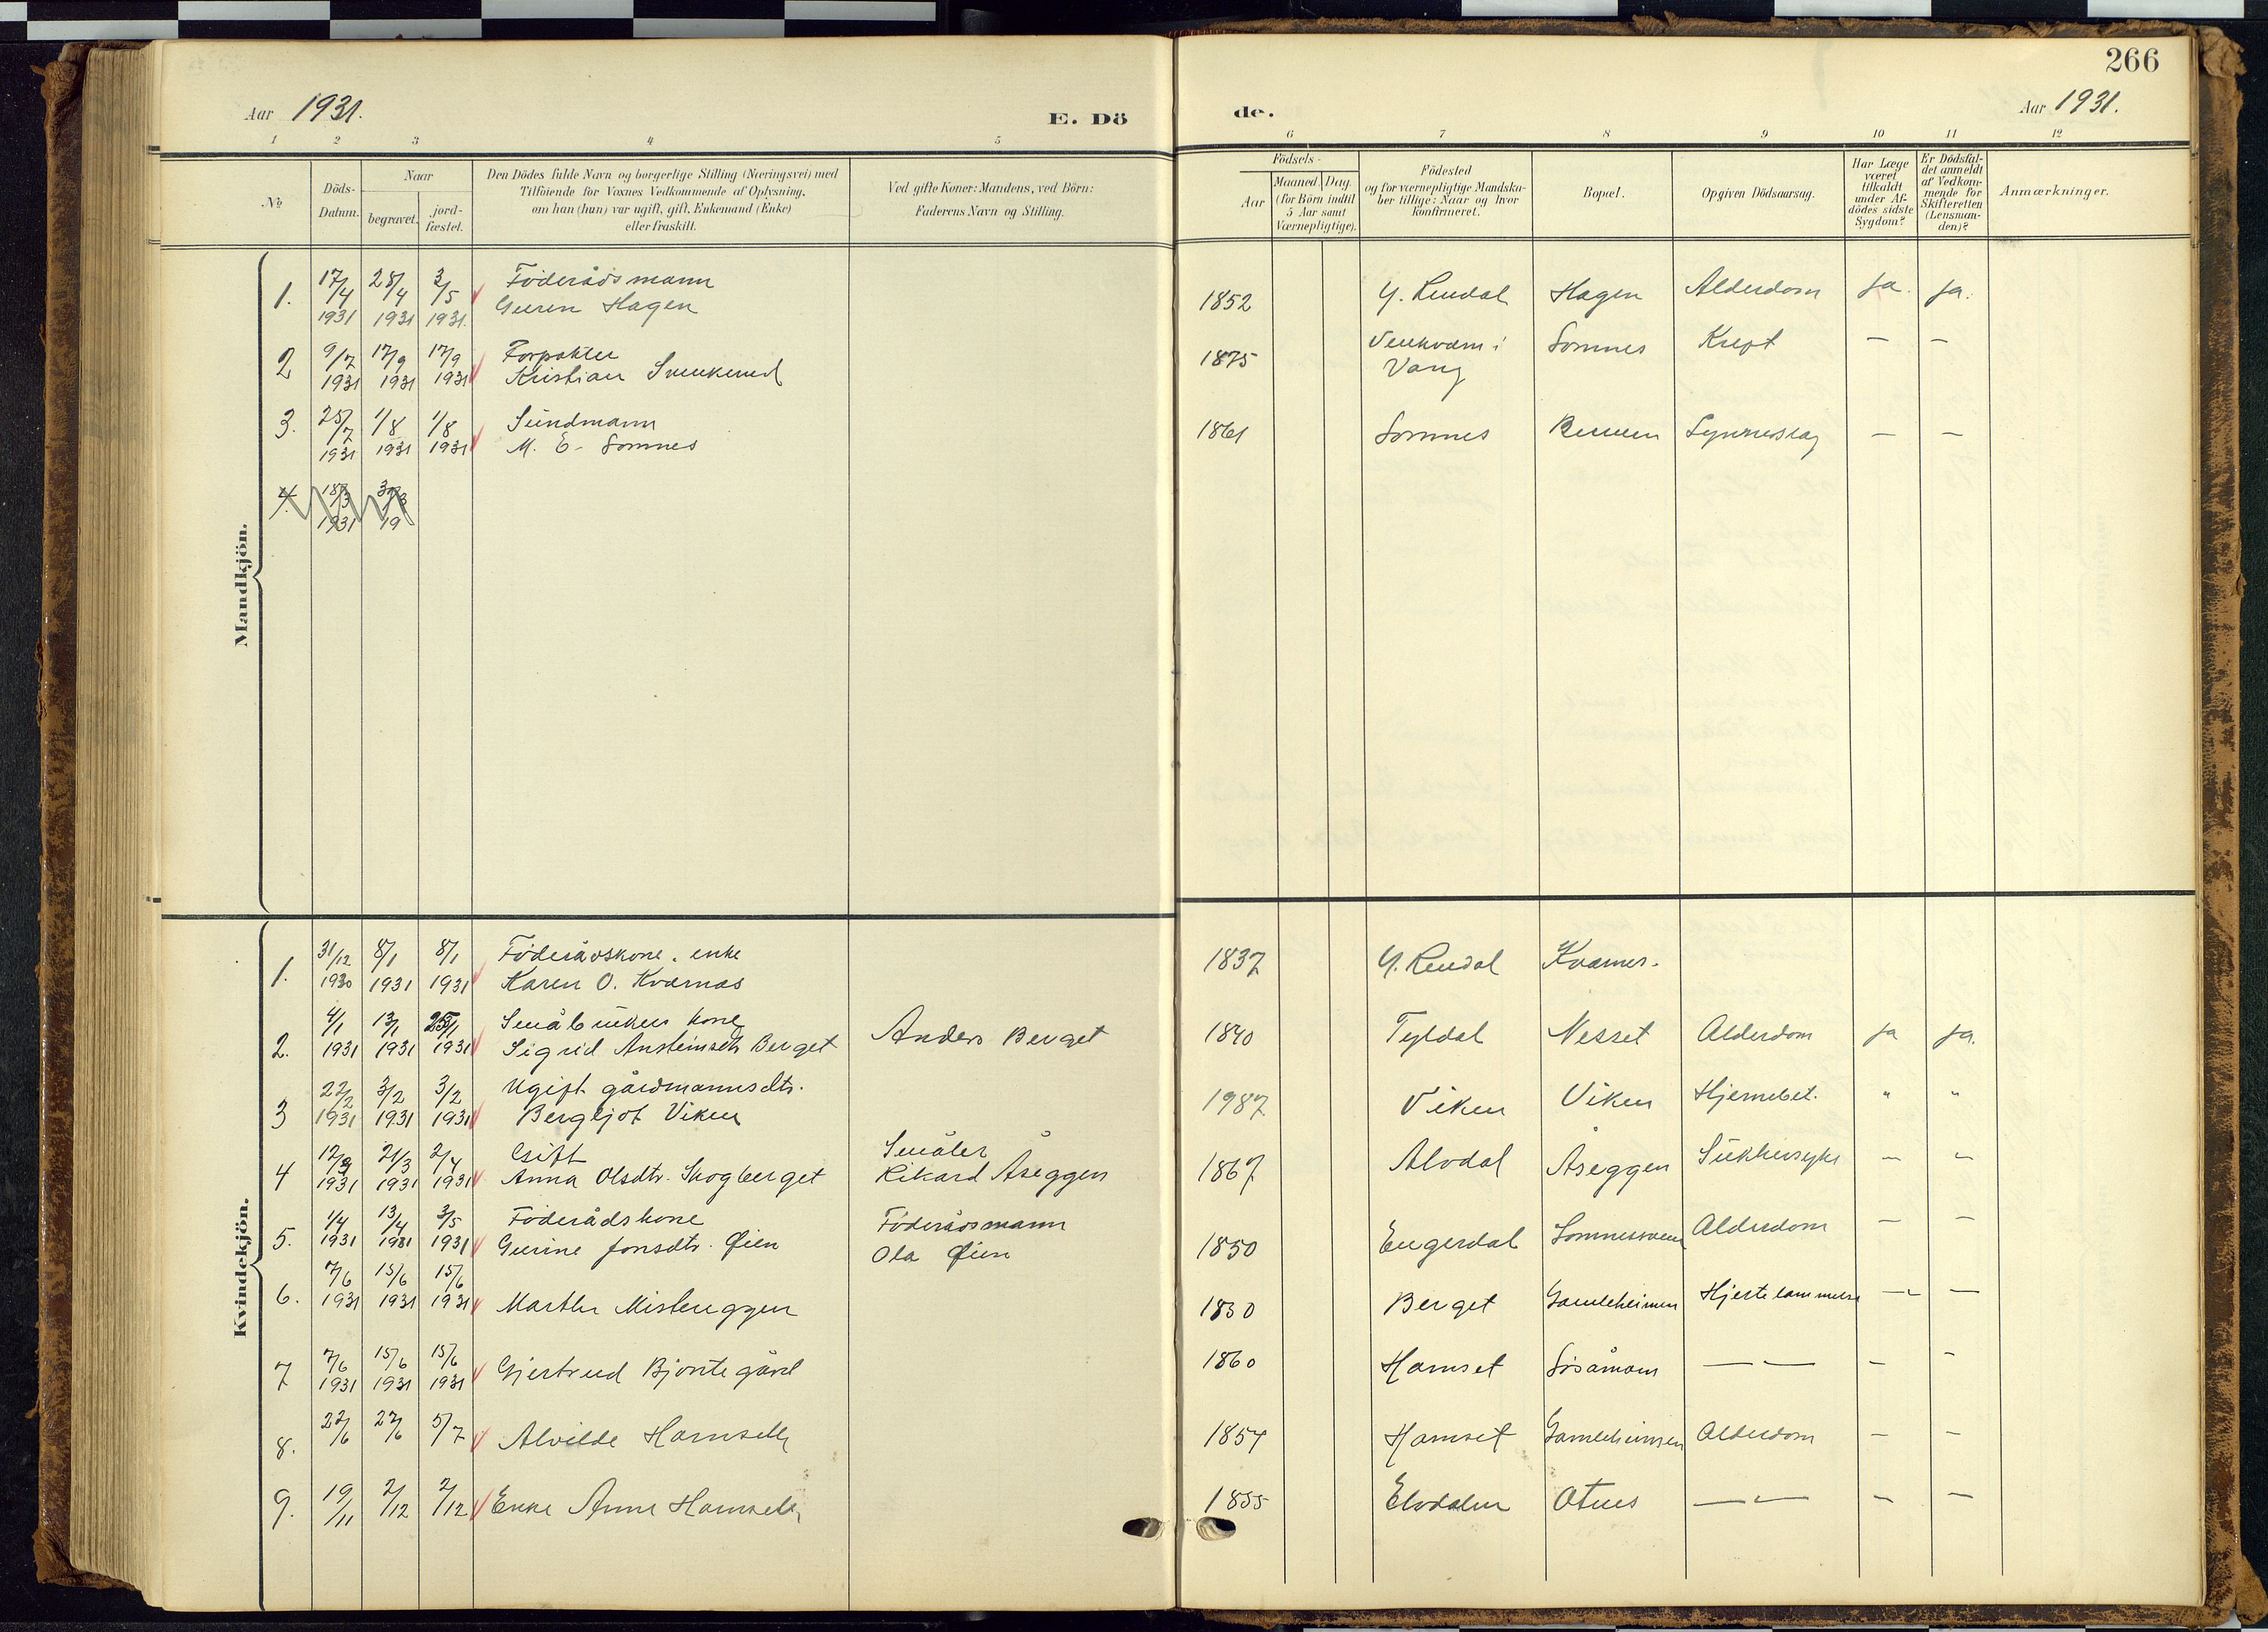 266
Aar 1931.
E. Dö
de.
Aar 1931.
1 2 3 4 5 6 7 8 9 10 11 12
No
Döds-
Datum.
Naar
begravet.
jord-
fæstet.
Den Dödes fulde Navn og borgerlige Stilling (Næringsvei) med
Tilföiende for Voxnes Vedkommende af Oplysning,
om han (hun) var ugift, gift, Enkemand (Enke)
eller fraskilt.
Ved gifte Koner: Mandens, ved Börn:
Faderens Navn og Stilling.
Födsels-
Aar
Maaned. Dag.
(for Börn indtil
5 Aar samt
Værnepligtige).
Födested
og for værnepligtige Mandska-
ber tillige: Naar og hvor
konfirmeret.
Bopæl.
Opgiven Dödsaarsag.
Har Læge
været
tilkaldt
under Af-
dödes sidste
Sygdom?
Er Dödsfal-
det anmeldt
af Vedkom-
mende for
Skifteretten
(Lensman-
den)?
Anmærkninger.
Mandkjön.
1. 17/4 1931 28/4 1931 3/5 1931
Föderådsmann
Hagen
1852 Y. Rendal Hagen Alderdom ja. ja.
2 9/7 1931 17/9 1931 17/9 1931
Forpakter
Kristian
1875
i
Vang
Lomnes Kreft — —
3. 25/7 1931 1/8 1931 1/8 1931
Sundmann
M. E. Lomnes
1861 Lomnes — —
4. 18/3 1931 19
Kvindekjön.
1. 31/12 1930 8/1 1931 8/1 1931
Föderådskone. enke
Karen O. Kværnas
1837 Y. Rendal
2. 4/1 1931 13/1 1931 25/1 1931
Småbrukers kone
Sigrid Ansteinsdtr Berget
Anders Berget
1840 Tyldal Nesset Alderdom ja ja.
3 22/2 1931 3/2 1931 3/2 1931
Ugift gårdmannsdtr.
Bergljot Viken
1987 Viken Viken Hjernebet. " "
4 12/3 1931 21/3 1931 2/4 1931
Gift
Anna Olsdtr. Skogberget
Rikard Åseggen
1867 Alvdal Åseggen Sukkersyke — —
5. 1/4 1931 13/4 1931 3/5 1931
Föderådskone
Gurine Jonsdtr. Øien
Föderådsmann
Ola Øien
1850 Engerdal Alderdom — —
6. 7/6 1931 15/6 1931 15/6 1931
Marthe Misteregggen
1850 Berget Gamleheimen Hjertelammelse — —
7 7/6 1931 15/6 1931 15/6 1931
Gjertrud Bjøntegård
1860 Hamset — — — —
8. 22/6 27/6 5/7
Alvilde Harnseth
1854 Hamset Gamleheimen Alderdom — —
9. 19/11 2/12 2/12
Enke Anne Harnseth
1855 Elvdalen Otnes — — — —